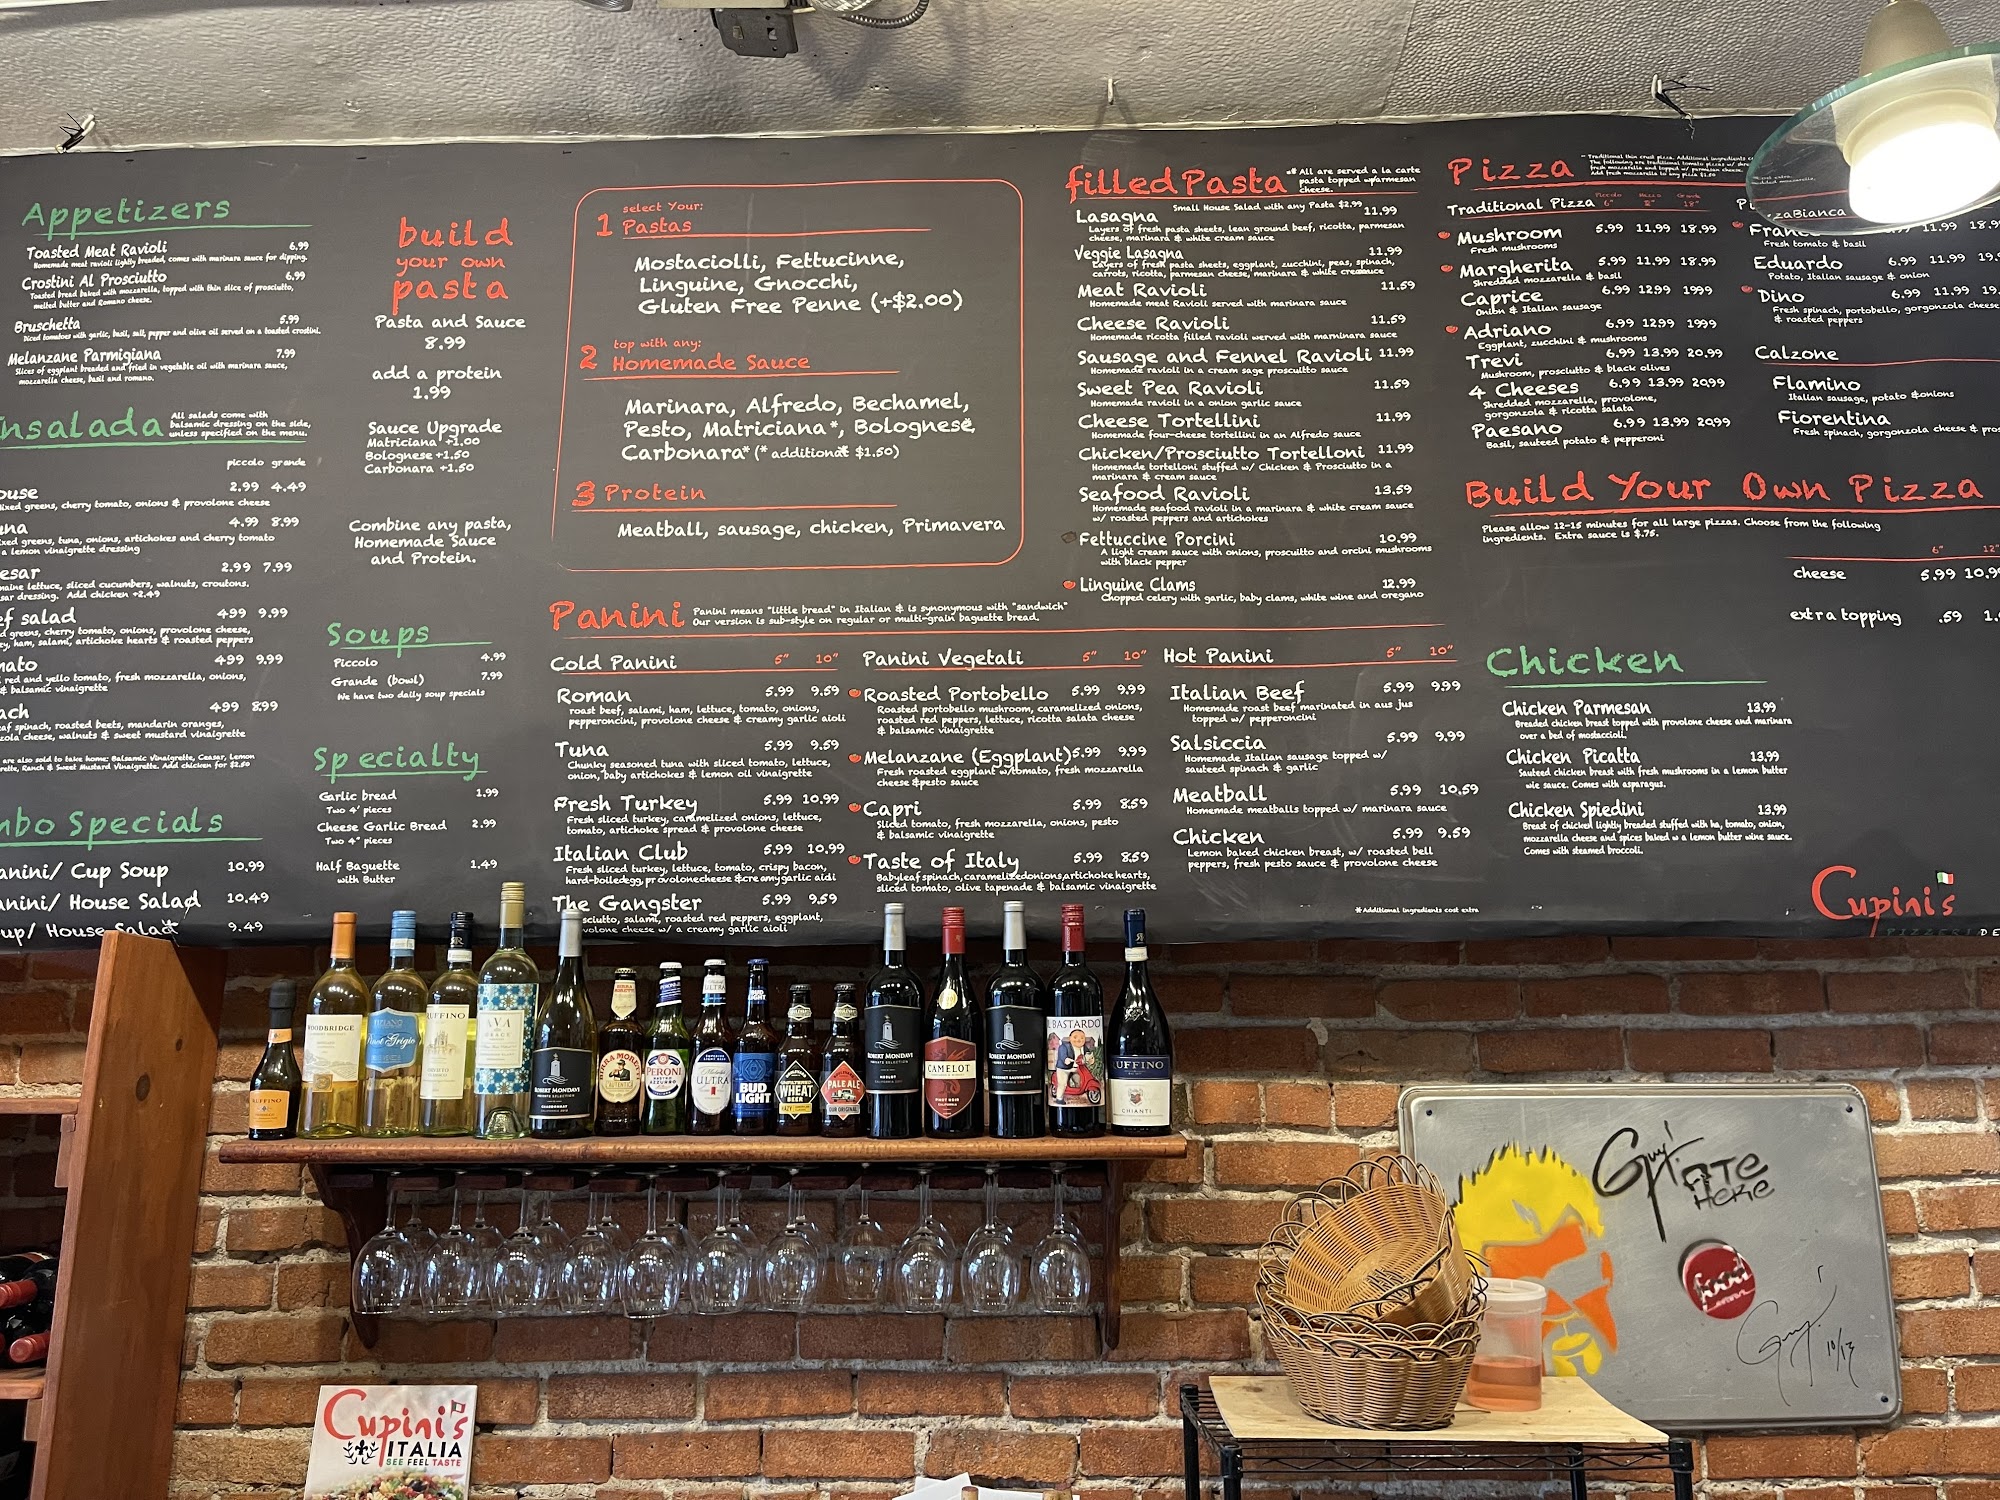 Appetizers
Toasted Meat Ravioli 6.99
Homemade meat ravioli lightly breaded, comes with marinara sauce for dipping.
Crostini Al Prosciutto 6.99
Toasted bread baked with mozzarella, topped with thin slice of prosciutto,
melted butter and Romano cheese.
Bruschetta 5.99
Diced tomatoes with garlic, basil, salt, pepper and olive oil served on a toasted crostini.
Melanzane Parmigiana 7.99
Slices of eggplant breaded and fried in vegetable oil with marinara sauce,
mozzarella cheese, basil and romano.
nsalada
All salads come with
balsamic dressing on the side,
unless specified on the menu.
piccolo grande
ouse 2.99 4.49
ixed greens, cherry tomato, onions & provolone cheese
una 4.99 8.99
ixed greens, tuna, onions, artichokes and cherry tomato
a lemon vinaigrette dressing
esar 2.99 7.99
maine lettuce, sliced cucumbers, walnuts, croutons.
sar dressing. Add chicken +2.49
ef salad 4.99 9.99
d greens, cherry tomato, onions, provolone cheese,
ey, ham, salami, artichoke hearts & roasted peppers
mato 4.99 9.99
d red and yello tomato, fresh mozzarella, onions,
& balsamic vinaigrette
ach 4.99 8.99
eaf spinach, roasted beets, mandarin oranges,
zola cheese, walnuts & sweet mustard vinaigrette
are also sold to take home: Balsamic Vinaigrette, Ceasar, Lemon
rette, Ranch & Sweet Mustard Vinaigrette. Add chicken for $2.50
mbo Specials
anini/ Cup Soup 10.99
anini/ House Salad 10.49
oup/ House Salad 9.49
build
your own
pasta
Pasta and Sauce
8.99
add a protein
1.99
Sauce Upgrade
Matriciana +1.00
Bolognese +1.50
Carbonara +1.50
Combine any pasta,
Homemade Sauce
and Protein.
Soups
Piccolo 4.99
Grande (bowl) 7.99
We have two daily soup specials
Specialty
Garlic bread 1.99
Two 4' pieces
Cheese Garlic Bread 2.99
Two 4" pieces
Half Baguette 1.49
with Butter
1 select Your:
Pastas
Mostaciolli, Fettucinne,
Linguine, Gnocchi,
Gluten Free Penne (+$2.00)
2 top with any:
Homemade Sauce
Marinara, Alfredo, Bechamel,
Pesto, Matriciana*, Bolognese*,
Carbonara* (* additional $1.50)
3 Protein
Meatball, sausage, chicken, Primavera
Panini
Panini means "little bread" in Italian & is synonymous with "sandwich"
Our version is sub-style on regular or multi-grain baguette bread.
Cold Panini 5" 10"
Roman 5.99 9.59
roast beef, salami, ham, lettuce, tomato, onions,
pepperoncini, provolone cheese & creamy garlic aioli
Tuna 5.99 9.59
Chunky seasoned tuna with sliced tomato, lettuce,
onion, baby artichokes & lemon oil vinaigrette
Fresh Turkey 5.99 10.99
Fresh sliced turkey, caramelized onions, lettuce,
tomato, artichoke spread & provolone cheese
Italian Club 5.99 10.99
Fresh sliced turkey, lettuce, tomato, crispy bacon,
hard-boiledegg, provolonecheese &creamygarlic aidi
The Gangster 5.99 9.59
sciutto, salami, roasted red peppers, eggplant,
volone cheese w/ a creamy garlic aioli
Panini Vegetali 5" 10"
Roasted Portobello 5.99 9.99
Roasted portobello mushroom, caramelized onions,
roasted red peppers, lettuce, ricotta salata cheese
& balsamic vinaigrette
Melanzane (Eggplant) 5.99 9.99
Fresh roasted eggplant w/tomato, fresh mozzarella
cheese &pesto sauce
Capri 5.99 8.59
Sliced tomato, fresh mozzarella, onions, pesto
& balsamic vinaigrette
Taste of Italy 5.99 8.59
Babyleaf spinach, caramelizedonions,artichoke hearts,
sliced tomato, olive tapenade & balsamic vinaigrette
Hot Panini 5" 10"
Italian Beef 5.99 9.99
Homemade roast beef marinated in aus jus
topped w/ pepperoncini
Salsiccia 5.99 9.99
Homemade Italian sausage topped w/
sauteed spinach & garlic
Meatball 5.99 10.59
Homemade meatballs topped w/ marinara sauce
Chicken 5.99 9.59
Lemon baked chicken breast, w/ roasted bell
peppers, fresh pesto sauce & provolone cheese
*Additional ingredients cost extra
filled Pasta
** All are served a la carte
pasta topped w/parmesan
cheese.
Small House Salad with any Pasta $2.99
Lasagna 11.99
Layers of fresh pasta sheets, lean ground beef, ricotta, parmesan
cheese, marinara & white cream sauce
Veggie Lasagna 11.99
Layers of fresh pasta sheets, eggplant, zucchini, peas, spinach,
carrots, ricotta, parmesan cheese, marinara & white creamsauce
Meat Ravioli 11.59
Homemade meat Ravioli served with marinara sauce
Cheese Ravioli 11.59
Homemade ricotta filled ravioli served with marninara sauce
Sausage and Fennel Ravioli 11.99
Homemade ravioli in a cream sage proscuitto sauce
Sweet Pea Ravioli 11.59
Homemade ravioli in a onion garlic sauce
Cheese Tortellini 11.99
Homemade four-cheese tortellini in an Alfredo sauce
Chicken/Prosciutto Tortelloni 11.99
Homemade tortelloni stuffed w/ Chicken & Prosciutto in a
marinara & cream sauce
Seafood Ravioli 13.59
Homemade seafood ravioli in a marinara & white cream sauce
w/ roasted peppers and artichokes
Fettuccine Porcini 10.99
A light cream sauce with onions, proscuitto and orcini mushrooms
with black pepper
Linguine Clams 12.99
Chopped celery with garlic, baby clams, white wine and oregano
Pizza
Traditional thin crust pizza. Additional ingredients
The following are traditional tomato pizzas w/
fresh mozzarella and topped w/ parmesan cheese.
Add fresh mozzarella to any pizza $1.50
Traditional Pizza 6" 18"
Mushroom 5.99 11.99 18.99
Fresh mushrooms
Margherita 5.99 11.99 18.99
Shredded mozzarella & basil
Caprice 6.99 12.99 19.99
Onion & Italian sausage
Adriano 6.99 12.99 19.99
Eggplant, zucchini & mushrooms
Trevi 6.99 13.99 20.99
Mushroom, prosciutto & black olives
4 Cheeses 6.99 13.99 20.99
Shredded mozzarella, provolone,
gorgonzola & ricotta salata
Paesano 6.99 13.99 20.99
Basil, sauteed potato & pepperoni
zzaBianca
Franc 11.99 18.9
Fresh tomato & basil
Eduardo 6.99 11.99 19.
Potato, Italian sausage & onion
Dino 6.99 11.99 19.
Fresh spinach, portobello, gorgonzola cheese
& roasted peppers
Calzone
Flamino
Italian sausage, potato &onions
Fiorentina
Fresh spinach, gorgonzola cheese & pros
Build Your Own Pizza
Please allow 12-15 minutes for all large pizzas. Choose from the following
ingredients. Extra sauce is $.75.
6" 12"
cheese 5.99 10.99
extra topping .59 1.
Chicken
Chicken Parmesan 13.99
Breaded chicken breast topped with provolone cheese and marinara
over a bed of mostaccioli.
Chicken Picatta 13.99
Sauteed chicken breast with fresh mushrooms in a lemon butter
wie sauce. Comes with asparagus.
Chicken Spiedini 13.99
Breast of chicken lightly breaded stuffed with ha, tomato, onion,
mozzarella cheese and spices baked w a lemon butter wine sauce.
Comes with steamed broccoli.
Cupini's
RUFFINO
WOODBRIDGE
Pinot Grigio
RUFFINO
AVA
GRACE
ROBERT MONDAVI
PRIVATE SELECTION
CHARDONNAY
BIRRA MORETTI
PERONI
ULTRA
BUD
LIGHT
UNFILTERED
WHEAT
BEER
PALE ALE
OUR ORIGINAL
ROBERT MONDAVI
PRIVATE SELECTION
MERLOT
CAMELOT
PINOT NOIR
CALIFORNIA
ROBERT MONDAVI
PRIVATE SELECTION
CABERNET SAUVIGNON
IL BASTARDO
RUFFINO
CHIANTI
Guy!
ATE
HERE
food
Guy! 10/13
Cupini's
ITALIA
SEE FEEL TASTE